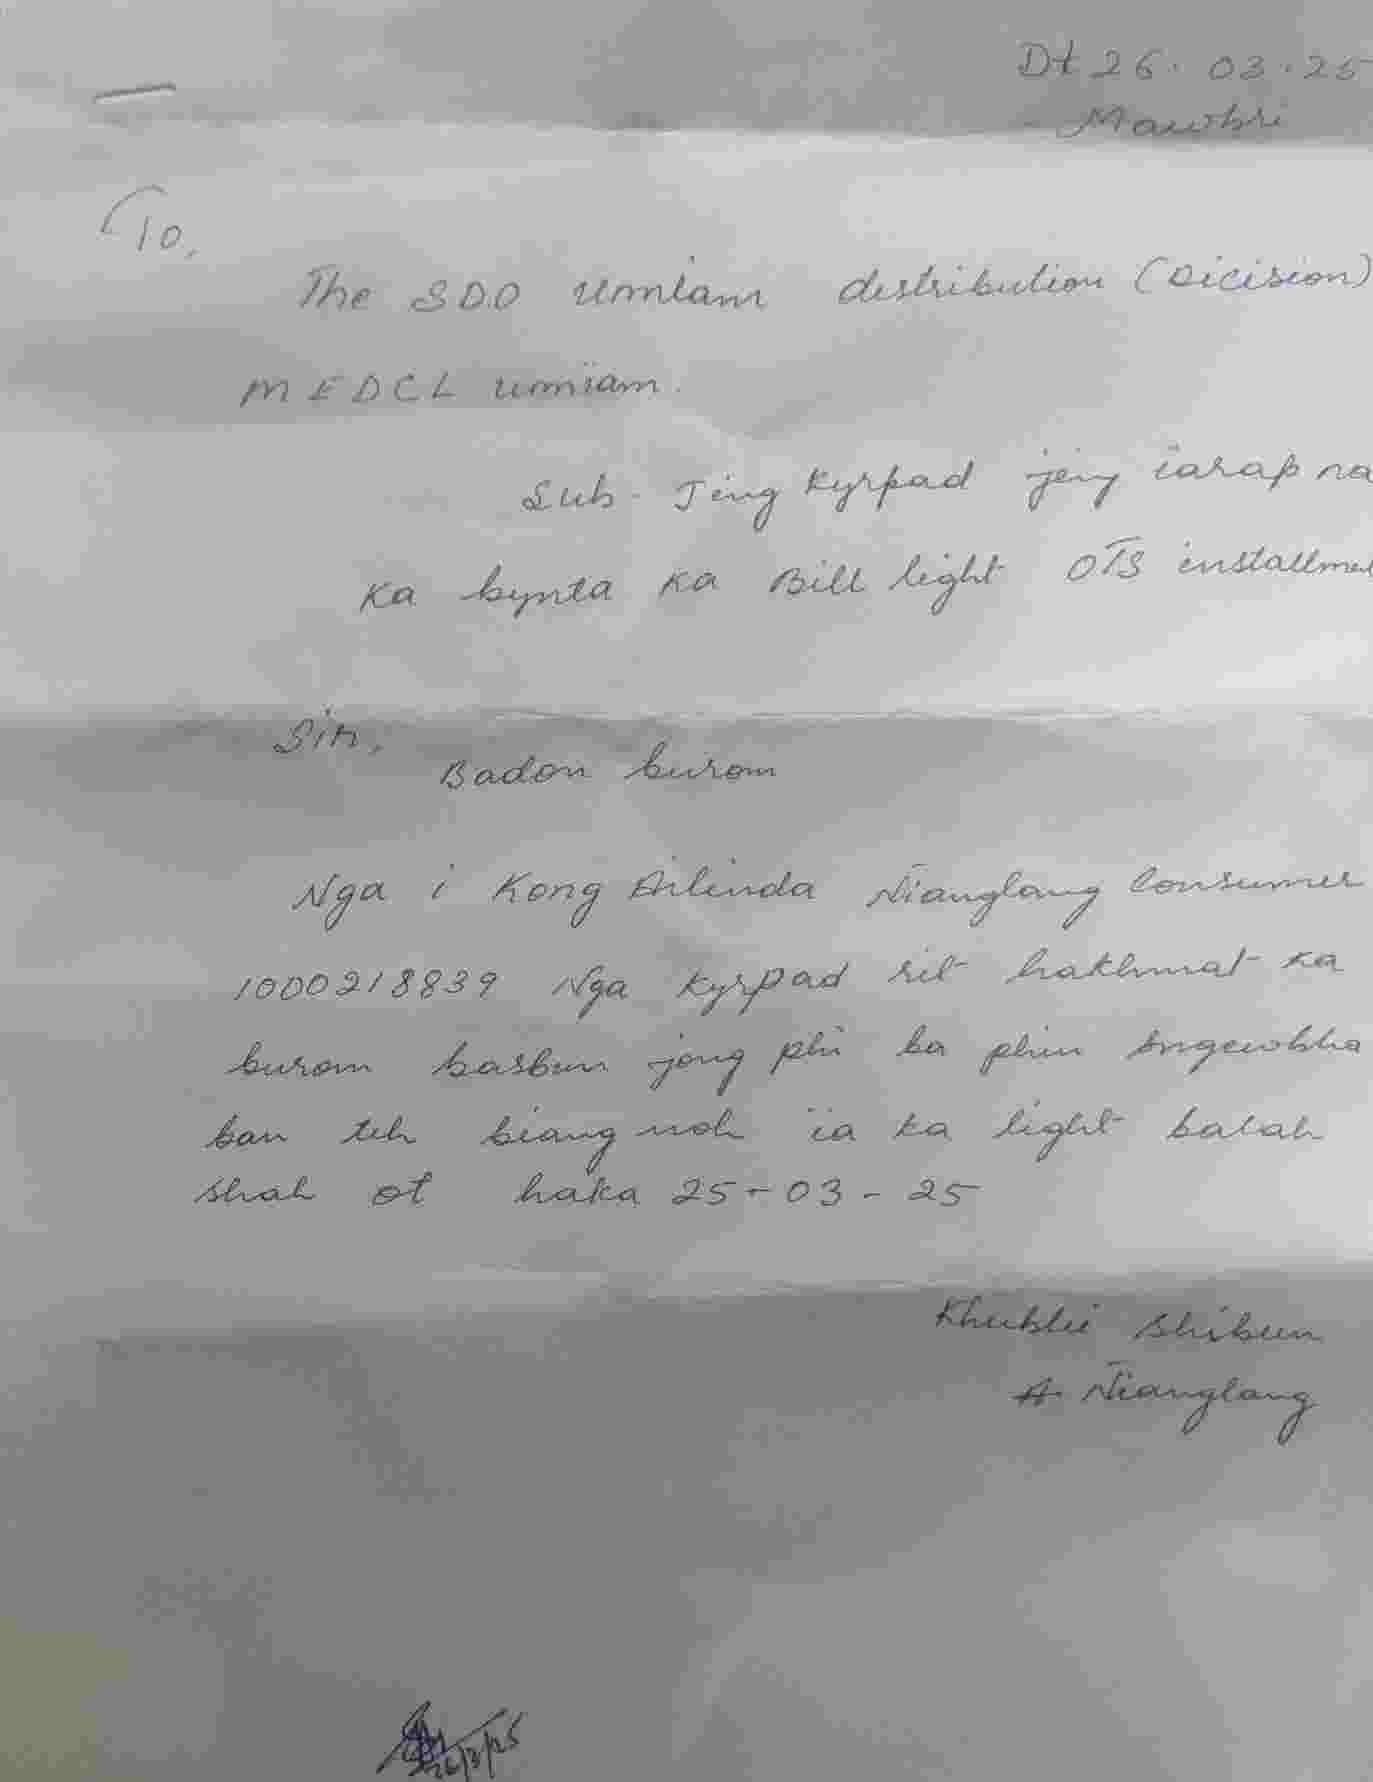 Dt 26. 03. 25
Mawbri
To,
The SDO umiam distribution (Dicision)
MEDCL umïam.
Sub - Jing Kyrpad jing ïarap na
Ka bynta Ka Bill light OTS installmen
Sir,
Badon burom
Nga i Kong Arlinda Nianglang Consumer
1000218839 Nga Kyrpad rit hakhmat Ka
burom basbun jong phi ba phin sngewbha
ban teh biang noh ïa ka light balah
shah ot haka 25-03-25
Khublei shibun
A. Nianglang
26/3/25